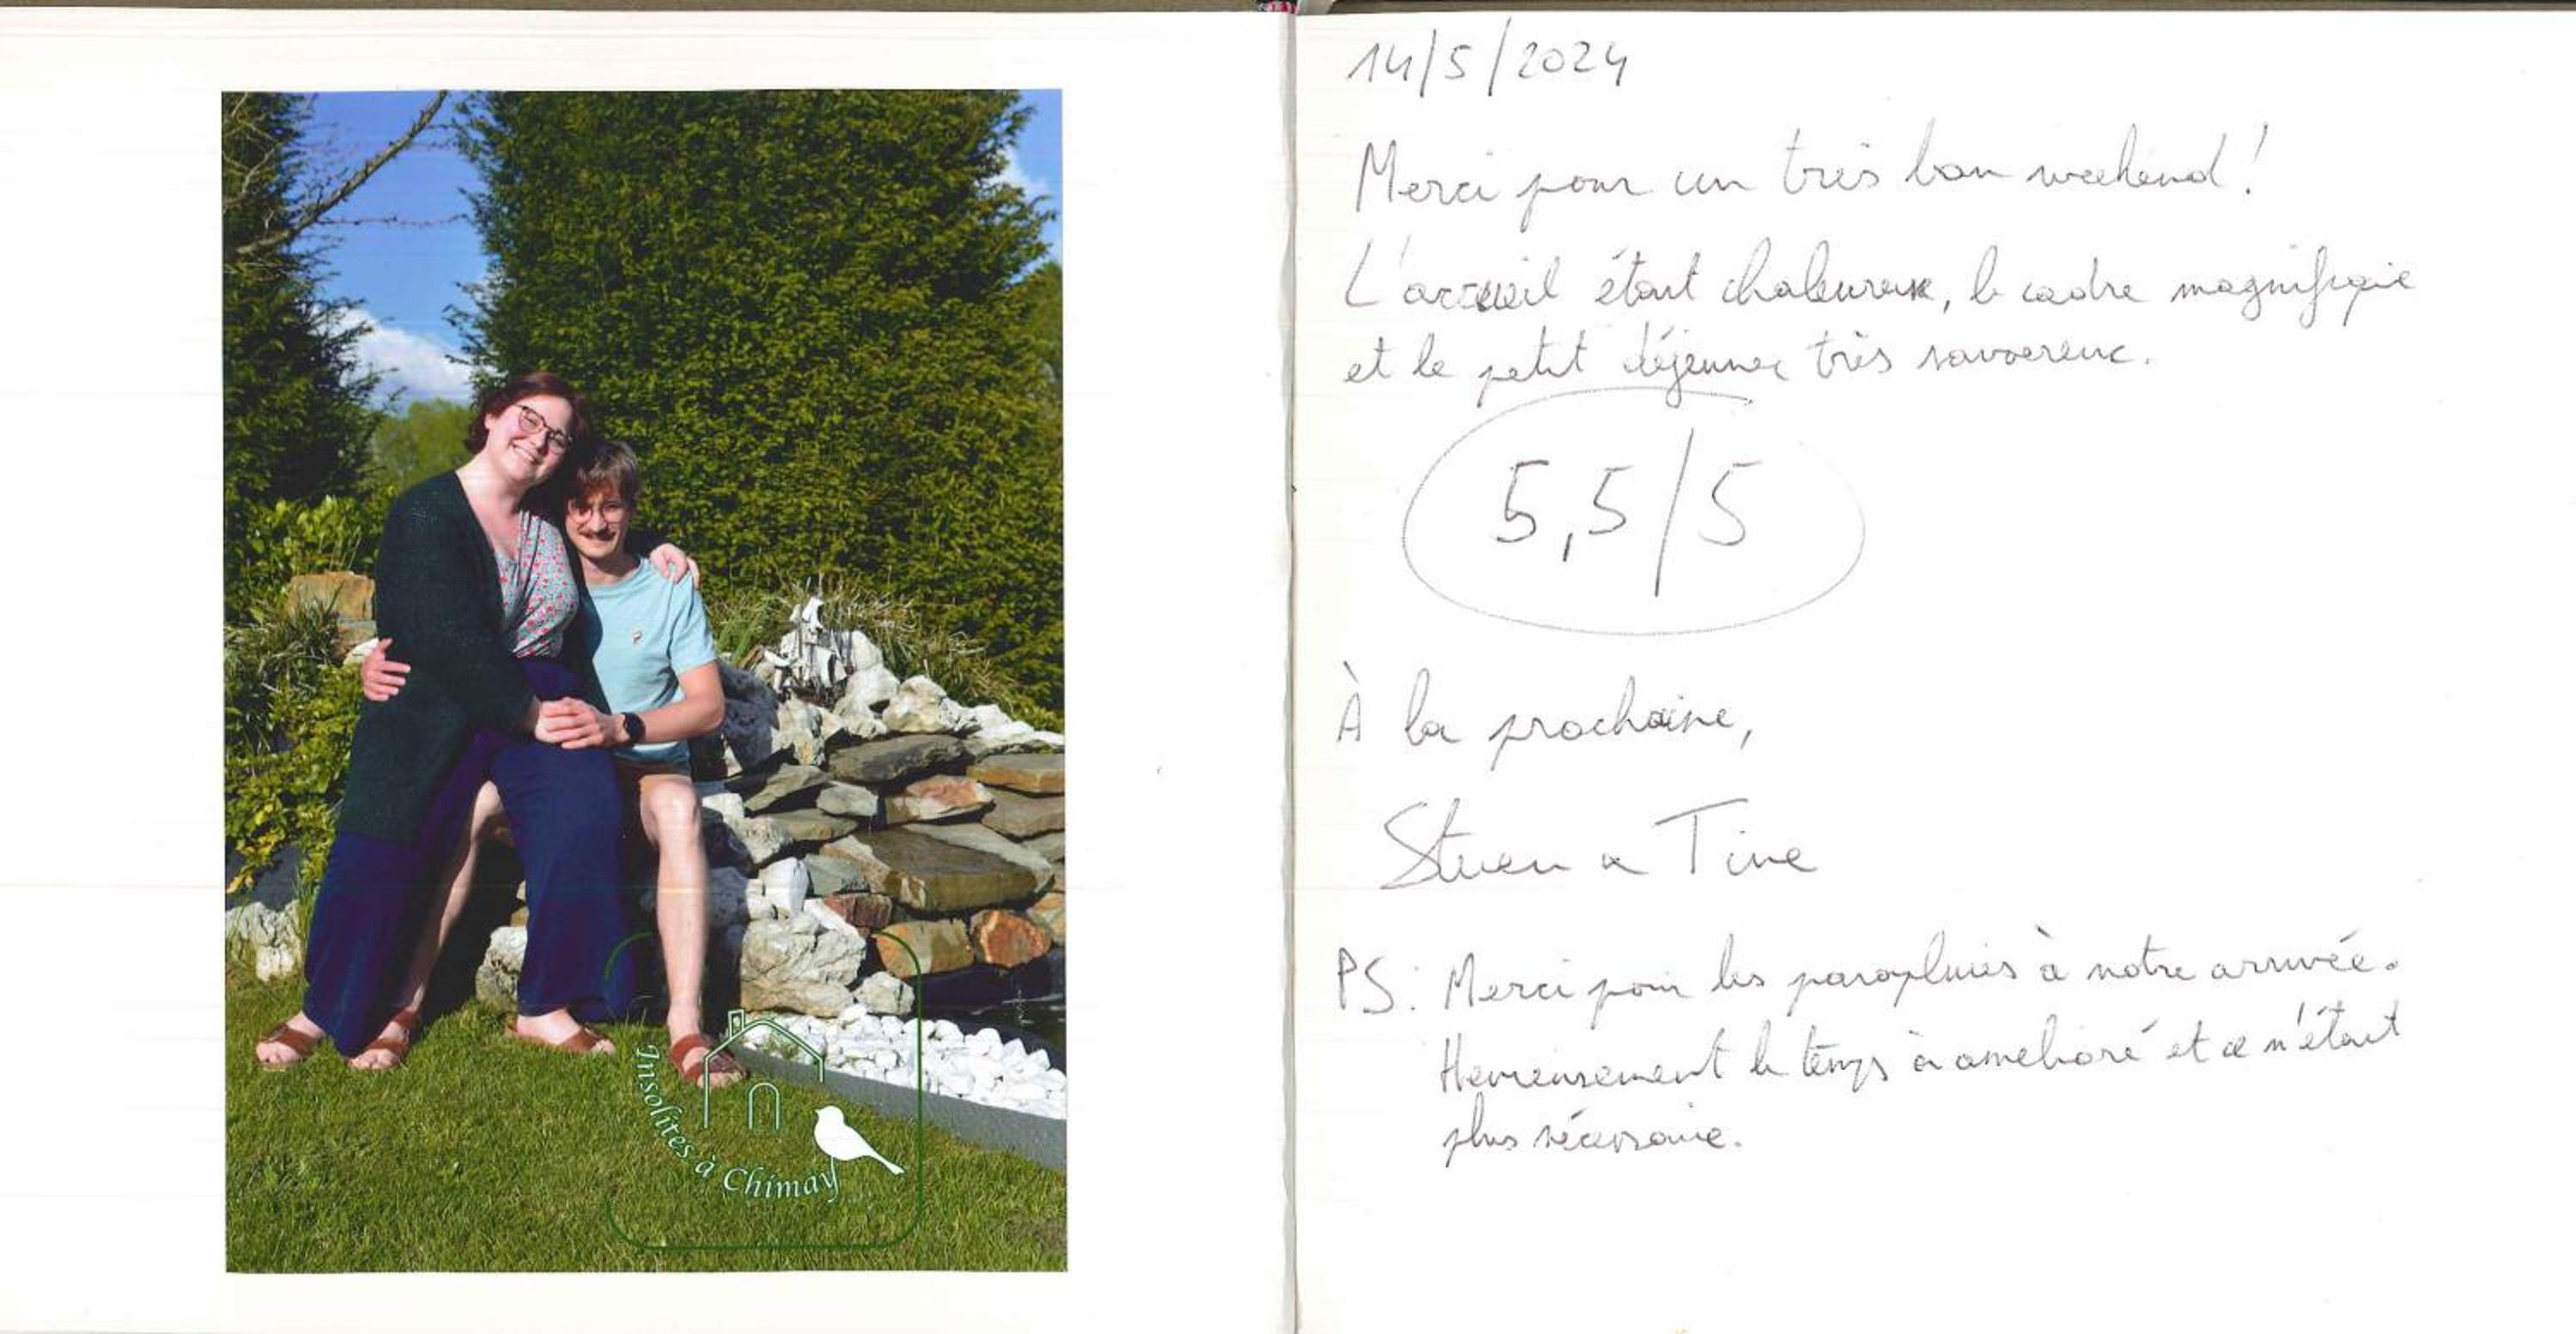 Insolites à Chimay
14/5/2024
Merci pour un très bon weekend!
L'accueil était chaleureux, le cadre magnifique
et le petit déjeuner très savoureux.
5,5/5
À la prochaine,
Steven & Tine
PS: Merci pour les parapluies à notre arrivée.
Heureusement le temps à amelioré et ce n'était
plus nécessaire.